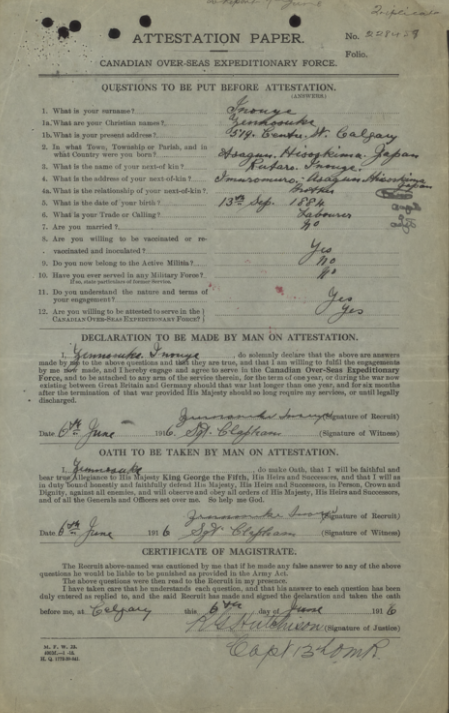 Triplicate
ATTESTATION PAPER.
No. 228479
Folio.
CANADIAN OVER-SEAS EXPEDITIONARY FORCE.
QUESTIONS TO BE PUT BEFORE ATTESTATION.
(ANSWERS)
1. What is your surname? Inouye
1a. What are your Christian names? Zennosuke
1b. What is your present address? 519. Centre St. Calgary
2. In what Town, Township or Parish, and in
what Country were you born? Asagun, Hiroshima, Japan
3. What is the name of your next-of-kin? Inouye.
4. What is the address of your next-of-kin? Asagun Hiroshima
Japan
4a. What is the relationship of your next-of-kin? Brother
5. What is the date of your birth? 13th Sep. 1884
6. What is your Trade or Calling? Labourer
7. Are you married? No
8. Are you willing to be vaccinated or re-
vaccinated and inoculated? Yes
9. Do you now belong to the Active Militia? No
10. Have you ever served in any Military Force? No
If so, state particulars of former Service.
11. Do you understand the nature and terms of
your engagement? Yes
12. Are you willing to be attested to serve in the
CANADIAN OVER-SEAS EXPEDITIONARY FORCE? Yes
DECLARATION TO BE MADE BY MAN ON ATTESTATION.
I, Zennosuke Inouye, do solemnly declare that the above are answers
made by me to the above questions and that they are true, and that I am willing to fulfil the engagements
by me now made, and I hereby engage and agree to serve in the Canadian Over-Seas Expeditionary
Force, and to be attached to any arm of the service therein, for the term of one year, or during the war now
existing between Great Britain and Germany should that war last longer than one year, and for six months
after the termination of that war provided His Majesty should so long require my services, or until legally
discharged.
Zennosuke Inouye (Signature of Recruit)
Date 6th June 1916 Sgt. Clapham (Signature of Witness)
OATH TO BE TAKEN BY MAN ON ATTESTATION.
I, Zennosuke, do make Oath, that I will be faithful and
bear true Allegiance to His Majesty King George the Fifth, His Heirs and Successors, and that I will as
in duty bound honestly and faithfully defend His Majesty, His Heirs and Successors, in Person, Crown and
Dignity, against all enemies, and will observe and obey all orders of His Majesty, His Heirs and Successors,
and of all the Generals and Officers set over me. So help me God.
Zennosuke Inouye (Signature of Recruit)
Date 6th June 1916 Sgt Clapham (Signature of Witness)
CERTIFICATE OF MAGISTRATE.
The Recruit above-named was cautioned by me that if he made any false answer to any of the above
questions he would be liable to be punished as provided in the Army Act.
The above questions were then read to the Recruit in my presence.
I have taken care that he understands each question, and that his answer to each question has been
duly entered as replied to, and the said Recruit has made and signed the declaration and taken the oath
before me, at Calgary this 6th day of June 1916
R G Hutchison (Signature of Justice)
Capt 13 CMR.
M. F. W. 23.